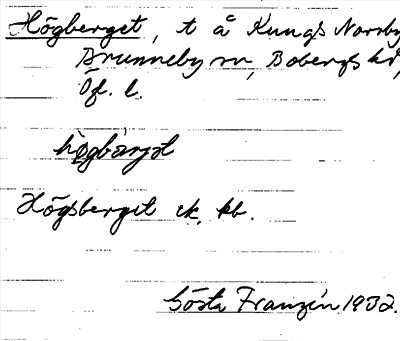 Högberget, t å Kungs Norrby
Brunneby sn, Bobergs hd,
Ög. l.
högbärjət
Högsberget ek. kb.
Gösta Franzén 1932.